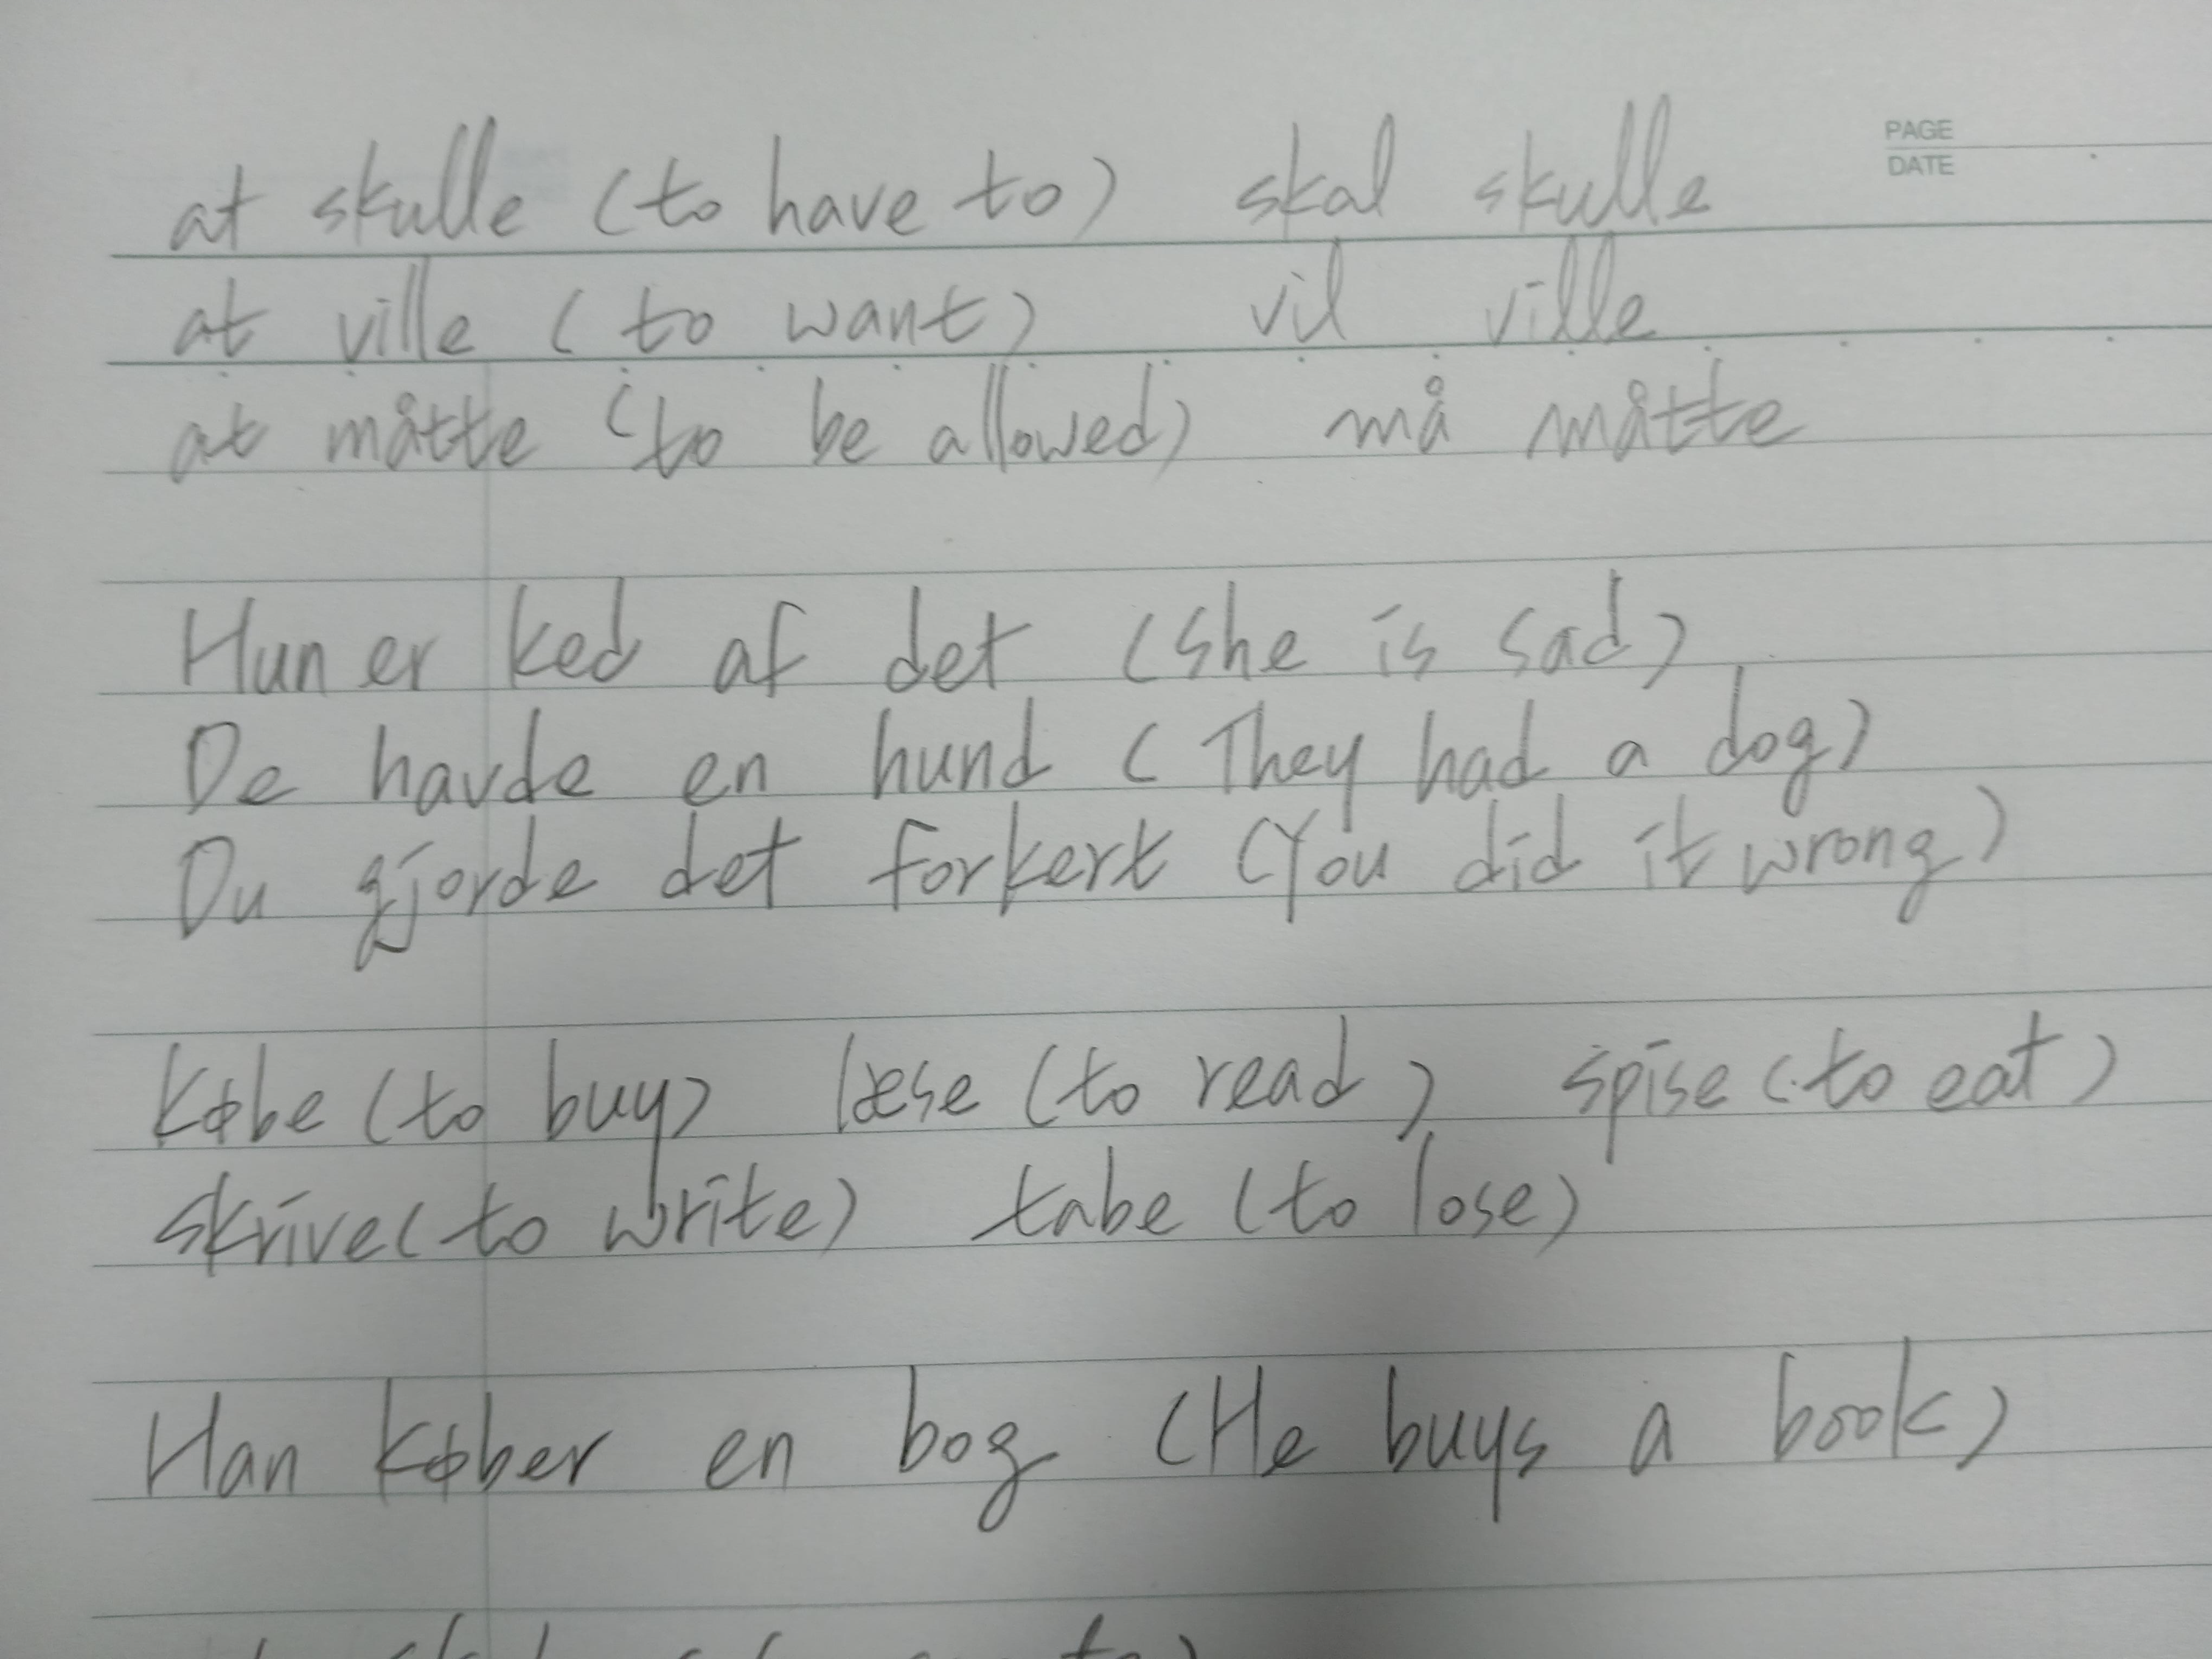 PAGE
DATE
at skulle (to have to) skal skulle
at ville (to want) vil ville
at måtte (to be allowed) må måtte
Hun er ked af det (She is sad)
De havde en hund (They had a dog)
Du gjorde det forkert (You did it wrong)
købe (to buy) læse (to read) spise (to eat)
skrive (to write) tabe (to lose)
Han køber en bog (He buys a book)